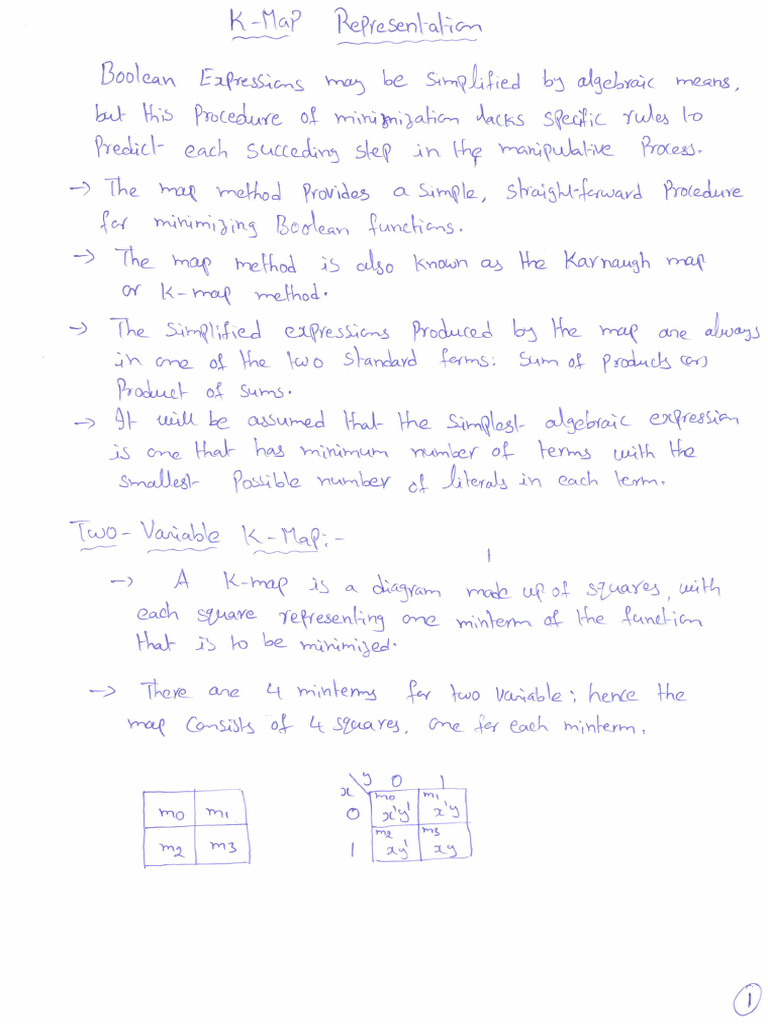 K-Map Representation
Boolean Expressions may be simplified by algebraic means,
but this Procedure of minimization lacks specific rules to
Predict each succeding step in the manipulative Process.
→ The map method provides a simple, straight-forward Procedure
for minimizing Boolean functions.
→ The map method is also known as the Karnaugh map
or K-map method.
→ The simplified expressions produced by the map are always
in one of the two standard forms: sum of products (or)
Product of sums.
→ It will be assumed that the simplest algebraic expression
is one that has minimum number of terms with the
smallest possible number of literals in each term.
Two-Variable K-Map:-
→ A K-map is a diagram made up of squares, with
each square representing one minterm of the function
that is to be minimized.
→ There are 4 minterms for two variable; hence the
map consists of 4 squares, one for each minterm.
m0 m1
m2 m3
x \ y 0 1
0 m0 x'y' m1 x'y
1 m2 xy' m3 xy
1